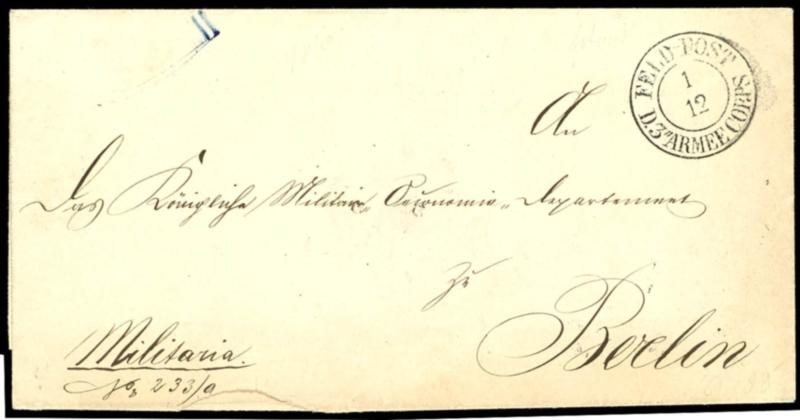 FELD-POST
1
12
D. 3n ARMEE CORPS
An
Das Königliche Militair-Oeconomie-Departement
zu
Berlin
Militaria.
No 233/a